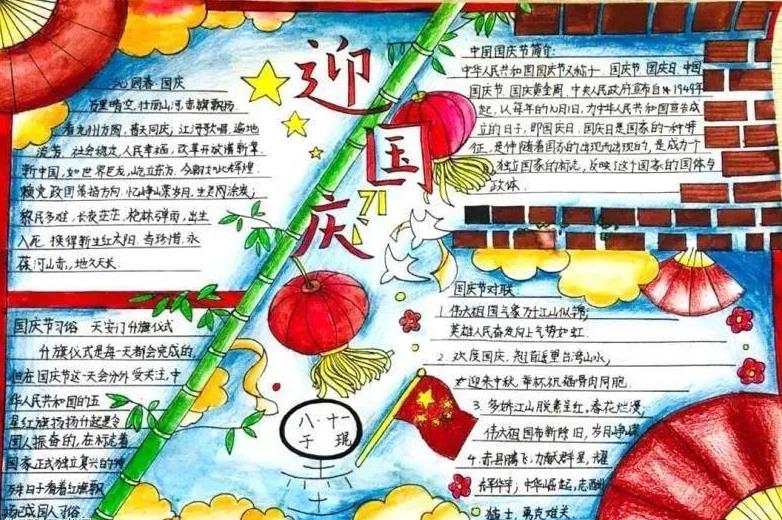 迎国庆
71
国庆
万里晴空,壮丽山河,赤旗飘扬
看九州方圆,普天同庆;江河歌唱,遍地
流芳,社会稳定,人民幸福,改革开放谱新章
新中国,如世界巨龙,屹立东方,今朝如此辉煌
赖党政国策指方向,忆峥嵘岁月,生灵涂炭;
黎民多难,长夜茫茫,枪林弹雨,出生
入死,换得新生红太阳,当珍惜,永
葆河山赤,地久天长
中国国庆节简介:
中华人民共和国国庆节又称十一、国庆节、国庆日、中国
国庆节、国庆黄金周,中央人民政府宣布自1949年
起,以每年的10月1日,为中华人民共和国宣告成
立的日子,即国庆日,国庆日是国家的一种特
征,是伴随着国家的出现而出现的,是成为个
独立国家的标志,反映了这个国家的国体与
政体.
国庆节习俗 天安门升旗仪式
升旗仪式是每一天都会完成的,
但在国庆节这一天会分外受关注,中
华人民共和国的五
星红旗扬扬升起是令
国人振奋的,在标志着
国家正式独立复兴的特
殊日子看着红旗飘
扬已成国人习俗
八.十一
于 琨
国庆节对联:
1. 伟大祖国气象万千江山似锦;
英雄人民奋发向上气势如虹.
2. 欢度国庆,
欢迎来中秋,举杯祝福骨肉同胞.
3. 多娇江山股素呈红,春花烂漫;
伟大祖国布新除旧,岁月峥嵘
4. 赤县腾飞,力献群星,耀
中华崛起,志酬
勇克难关